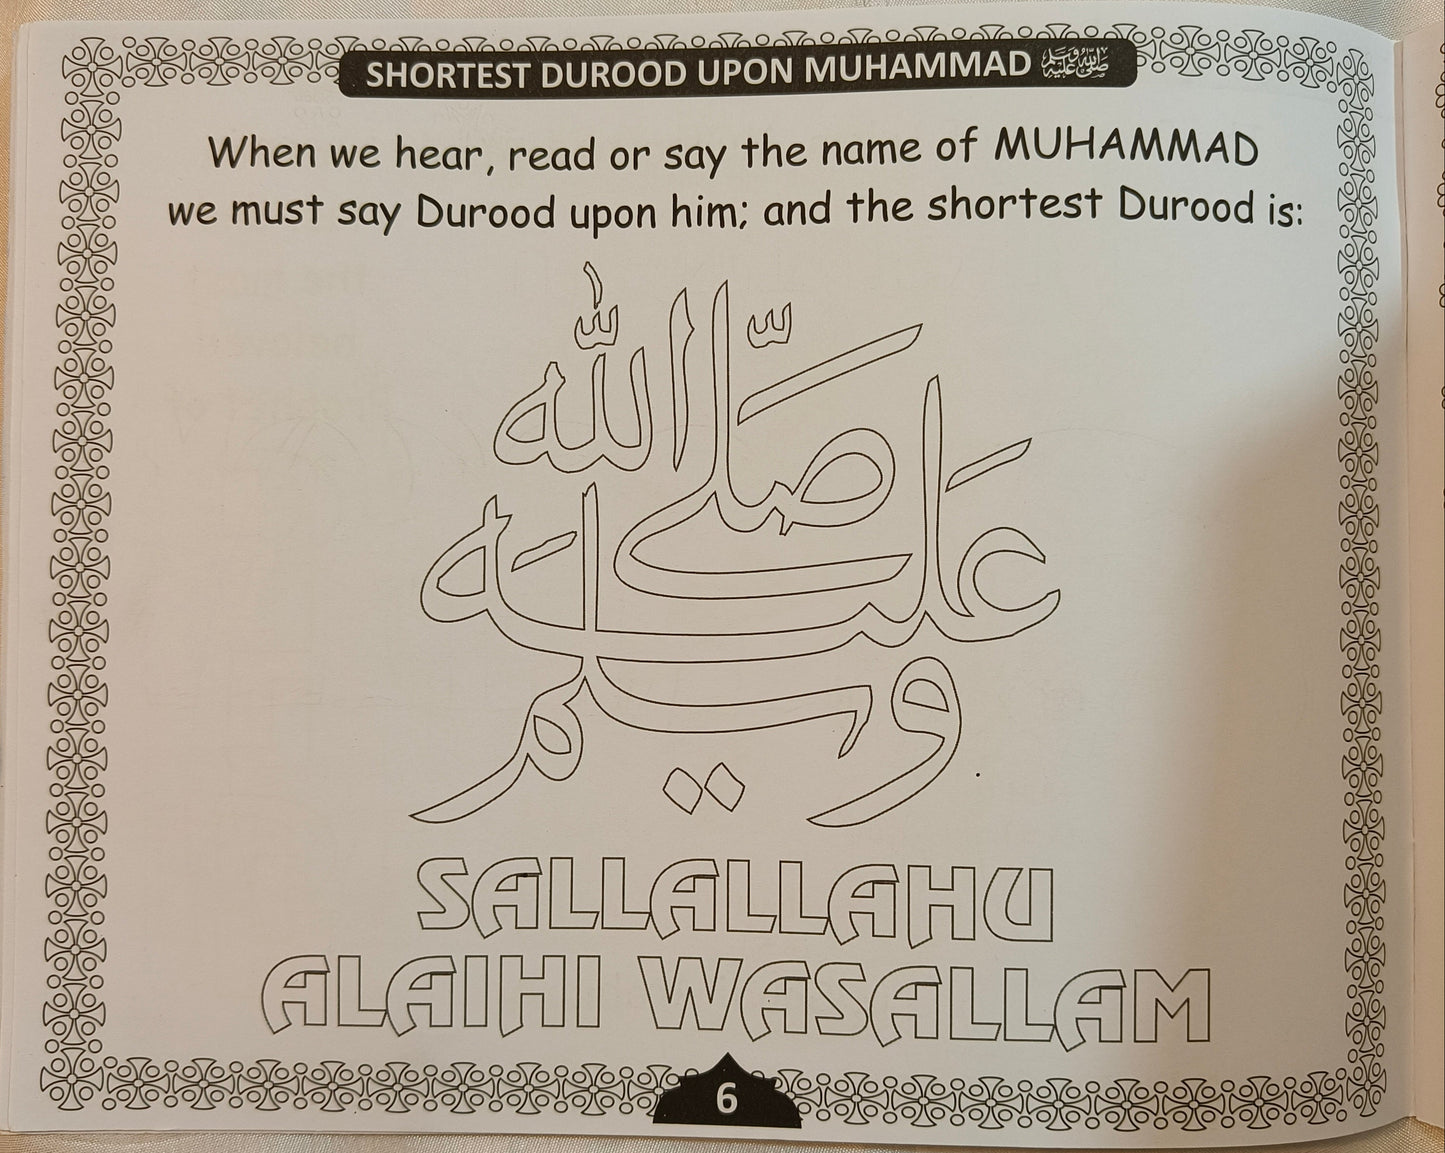 SHORTEST DUROOD UPON MUHAMMAD ﷺ
When we hear, read or say the name of MUHAMMAD
we must say Durood upon him; and the shortest Durood is:
صَلَّى اللّٰه
عليه
وسلم
SALLALLAHU
ALAIHI WASALLAM
6